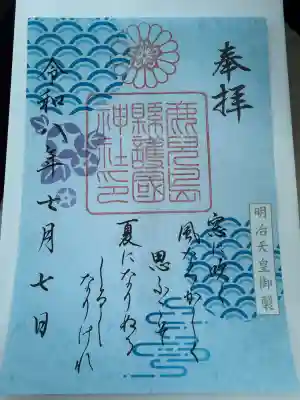 奉拝
鹿兒島
縣護國
神社印
明治天皇御製
窓に吹く
風なつかしく
思ふこそ
夏になりぬる
しるし
なりけれ
令和八年七月七日